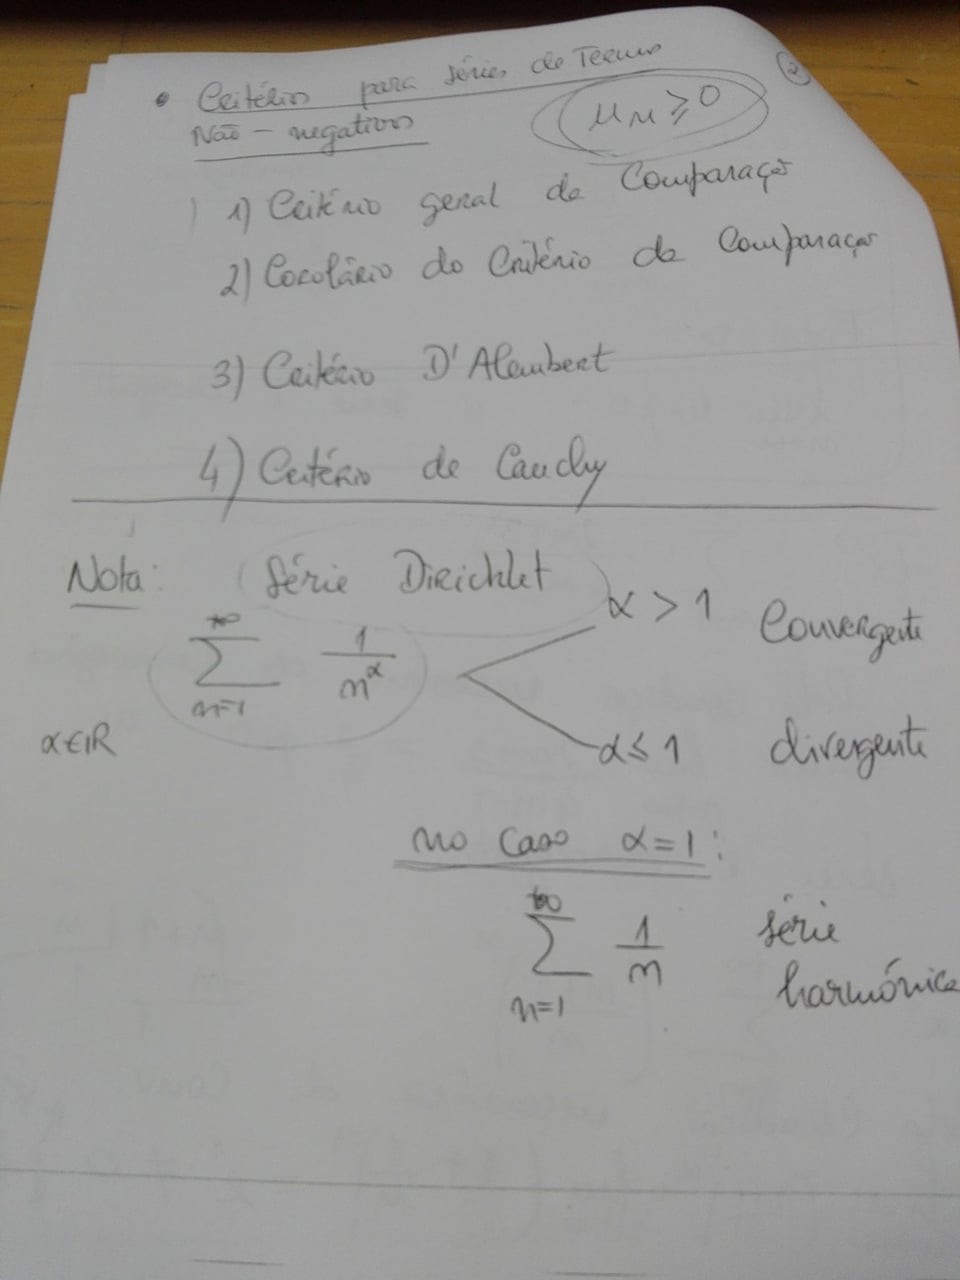 • Critérios para séries de Termos
Não - negativos
μn ≥ 0
2
1) Critério geral de Comparação
2) Corolário do Critério de Comparação
3) Critério D'Alembert
4) Critério de Cauchy
Nota: Série Dirichlet
+∞
∑ 1/n^α
n=1
α > 1 Convergente
α ≤ 1 divergente
α ∈ IR
no caso α = 1:
+∞
∑ 1/n
n=1
série
harmónica